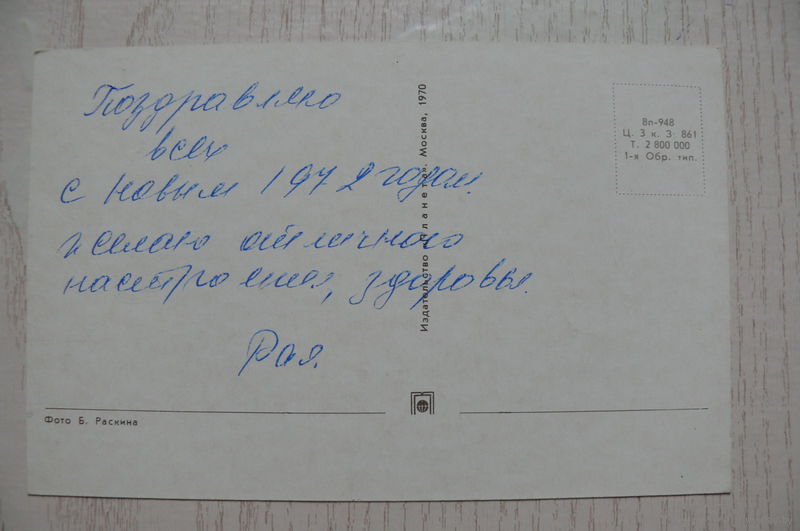 Поздравляю
всех
с новым 1972 годом.
желаю отличного
настроения, здоровья.
Рая.
Издательство «Планета». Москва, 1970
8п-948
Ц. 3 к. З. 861
Т. 2 800 000
1-я Обр. тип.
Фото Б. Раскина